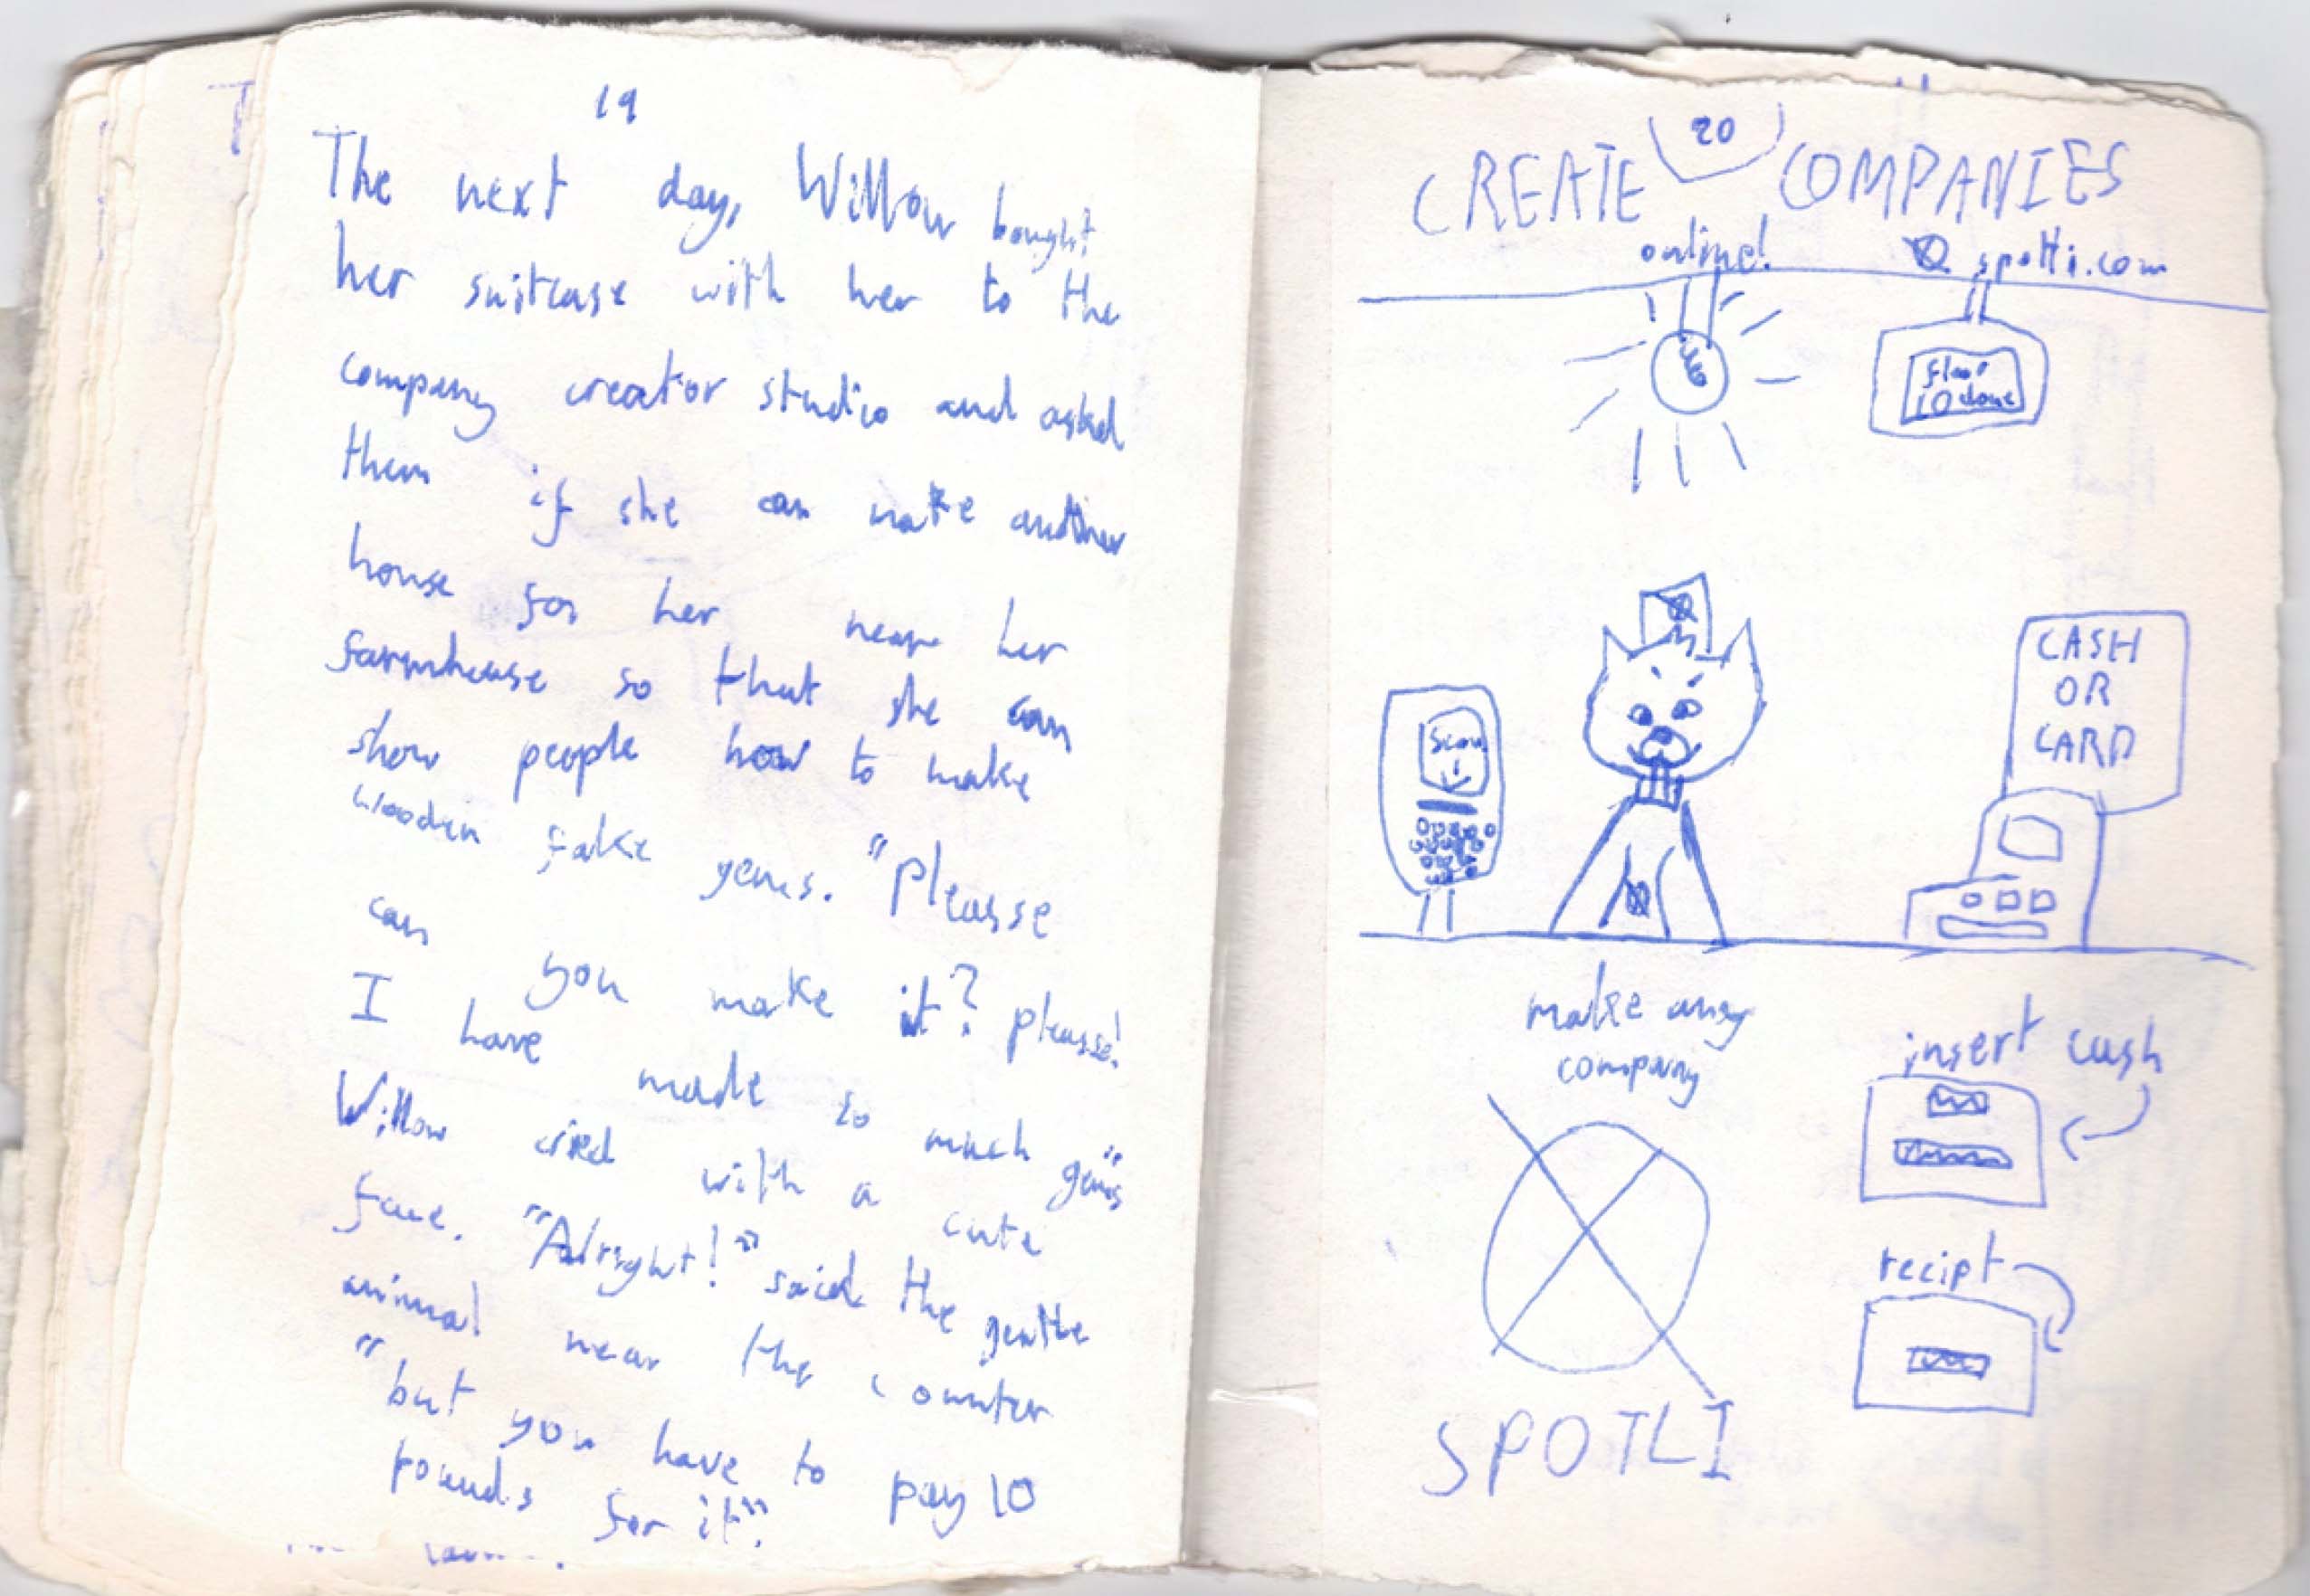 19
The next day, Willow bought
her suitcase with her to the
company creator studio and asked
them if she can make another
house for her near her
farmhouse so that she can
show people how to make
wooden fake gems. "Pleasse
can you make it? pleasse!
I have made so much gems"
Willow cried with a cute
face. "Alright!" said the gentle
animal near the counter
"but you have to pay 10
pounds for it".
20
CREATE COMPANIES
online! spotli.com
floor
10 done
CASH
OR
CARD
scan
make any
company
insert cash
recipt
SPOTLI